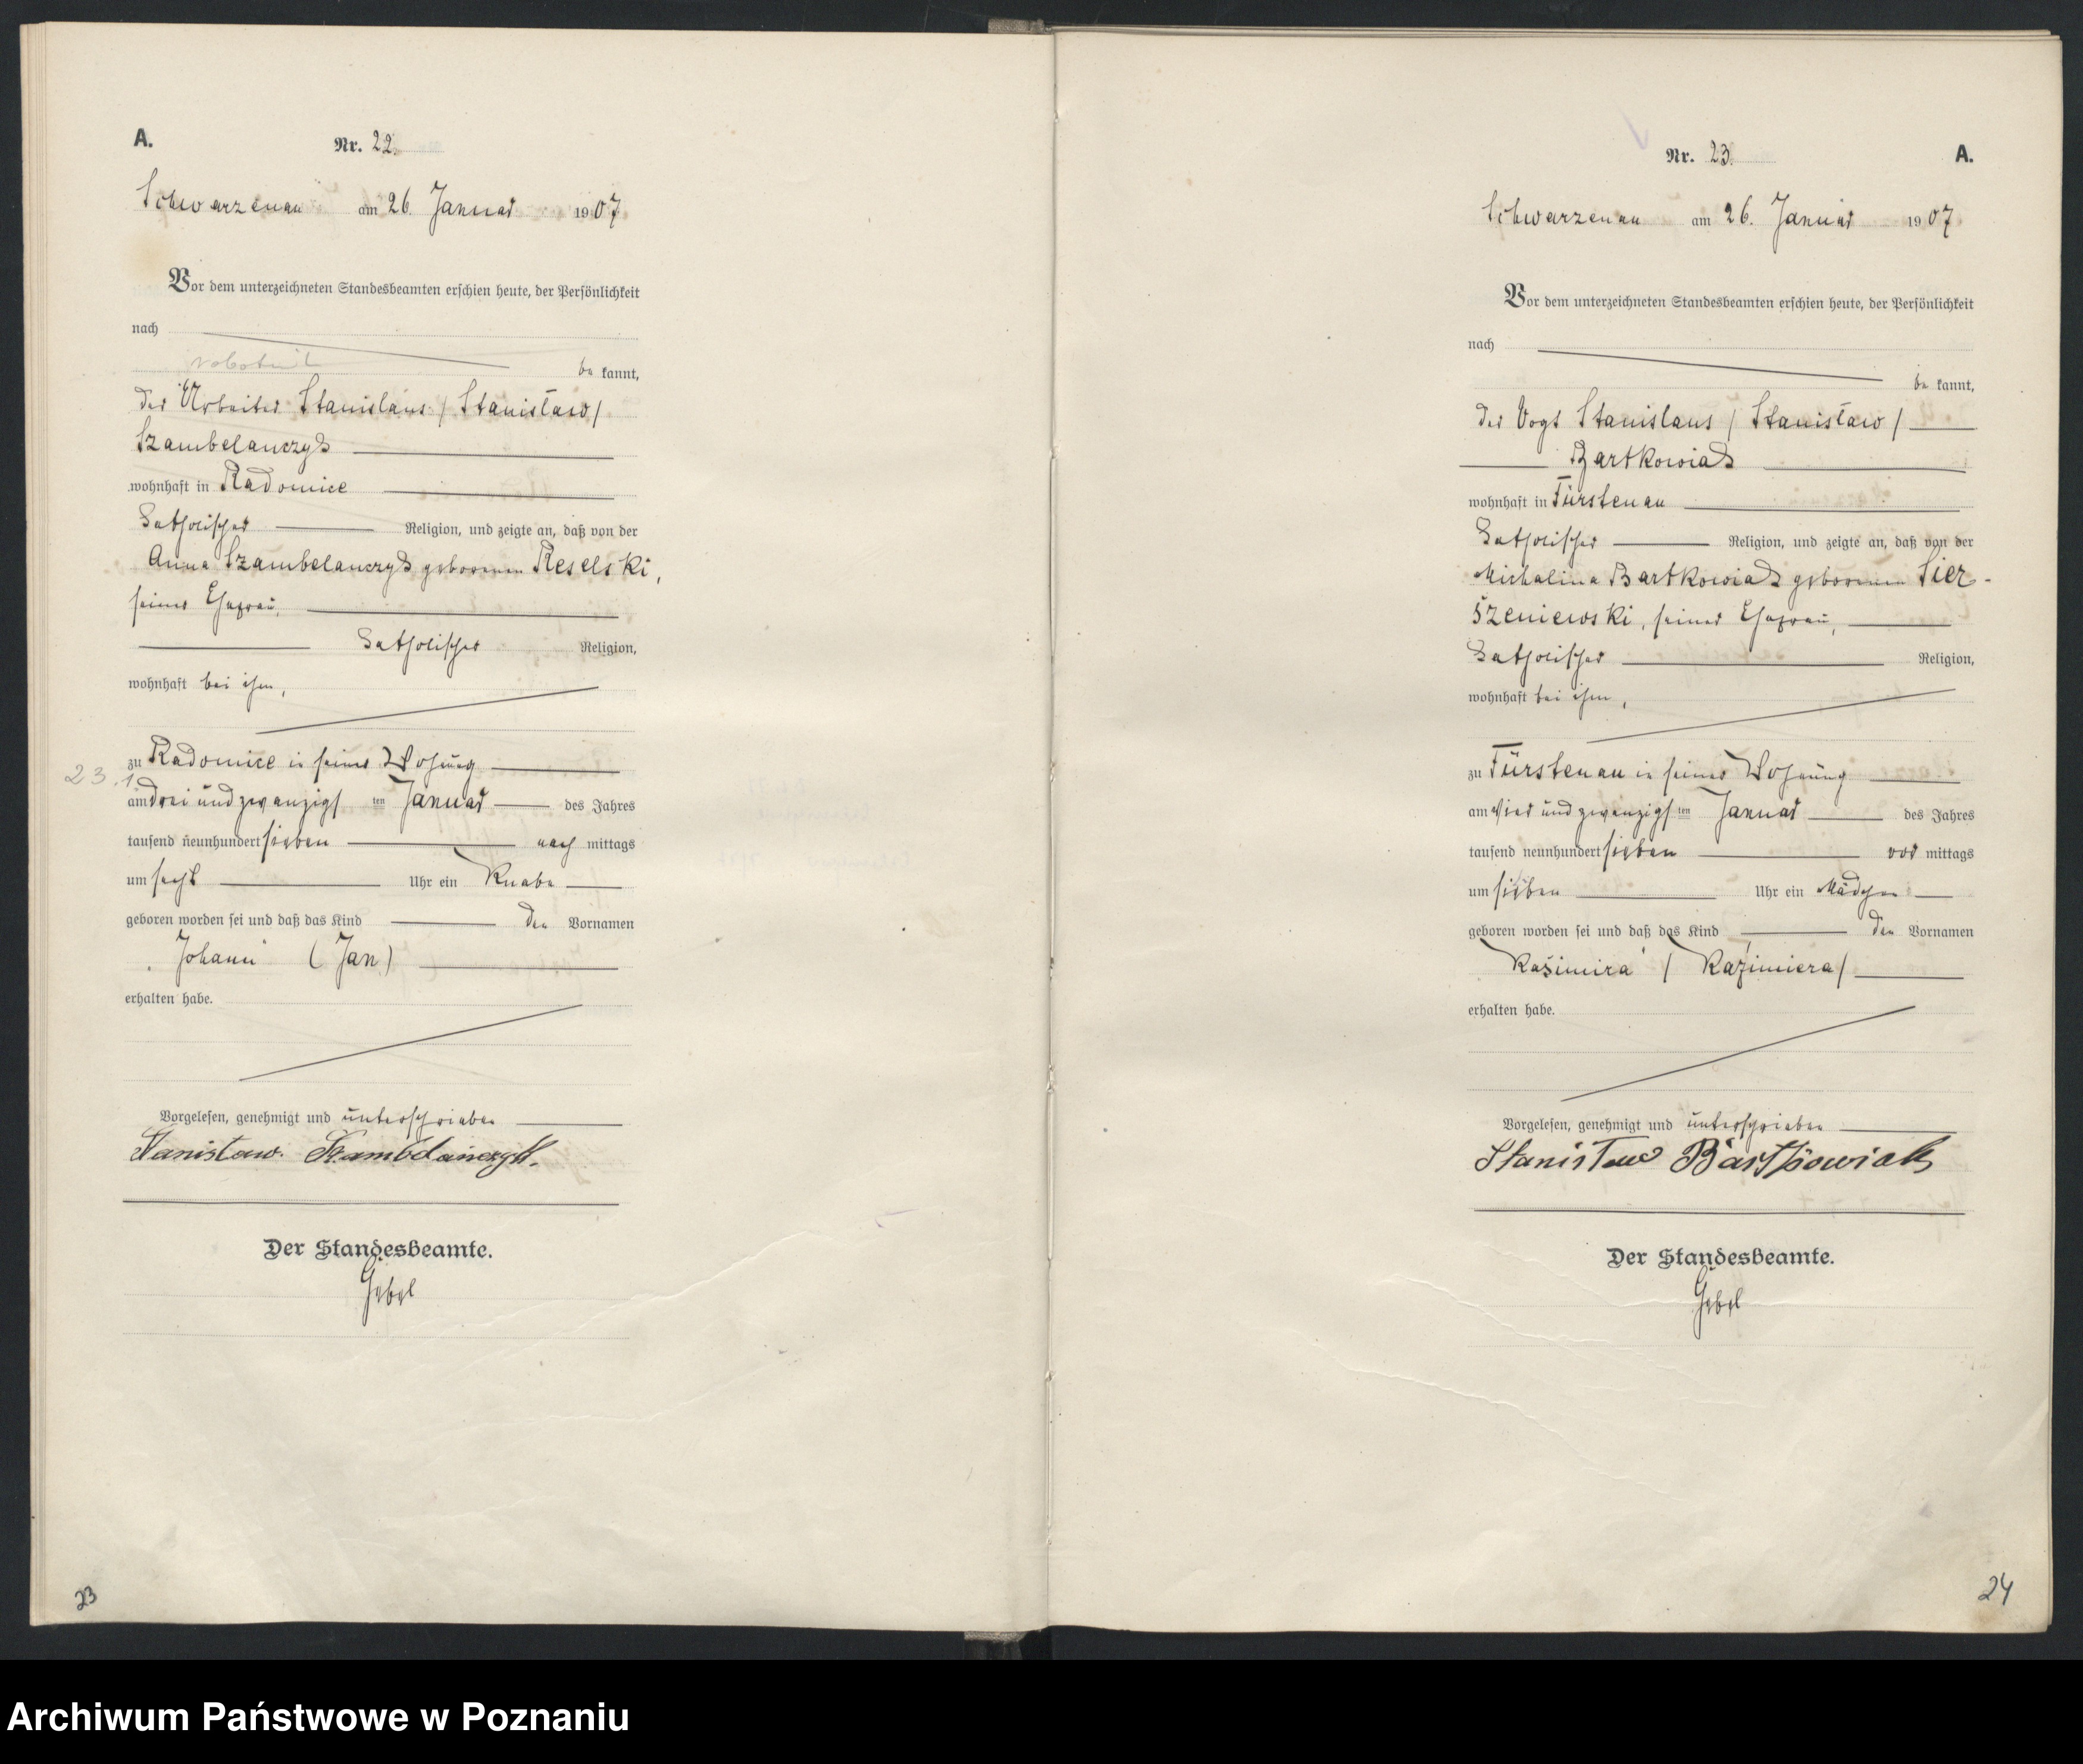 A.
Nr. 22.
Schwarzenau am 26. Januar 1907
Vor dem unterzeichneten Standesbeamten erschien heute, der Persönlichkeit
nach
robotnik
be kannt,
der Arbeiter Stanislaus / Stanisław /
Szambelanczyk
wohnhaft in Radomice
katholischer Religion, und zeigte an, daß von der
Anna Szambelanczyk geborenen Reselski,
seiner Ehefrau,
katholischer Religion,
wohnhaft bei ihm,
zu Radomice in seiner Wohnung
23.1.
am drei und zwanzigsten Januar des Jahres
tausend neunhundert sieben nach mittags
um sechs Uhr ein Knabe
geboren worden sei und daß das Kind den Vornamen
Johann (Jan)
erhalten habe.
Vorgelesen, genehmigt und unterschrieben
Stanisław Szambelanczyk.
Der Standesbeamte.
Gebel
23
Nr. 23. A.
Schwarzenau am 26. Januar 1907
Vor dem unterzeichneten Standesbeamten erschien heute, der Persönlichkeit
nach
be kannt,
der Vogt Stanislaus / Stanisław /
Bartkowiak
wohnhaft in Fürstenau
katholischer Religion, und zeigte an, daß von der
Michalina Bartkowiak geborenen Sier-
szeniewski, seiner Ehefrau,
katholischer Religion,
wohnhaft bei ihm,
zu Fürstenau in seiner Wohnung
am vier und zwanzigsten Januar des Jahres
tausend neunhundert sieben vor mittags
um sieben Uhr ein Mädchen
geboren worden sei und daß das Kind den Vornamen
Kasimira / Kazimiera /
erhalten habe.
Vorgelesen, genehmigt und unterschrieben
Stanisław Bartkowiak
Der Standesbeamte.
Gebel
24
Archiwum Państwowe w Poznaniu